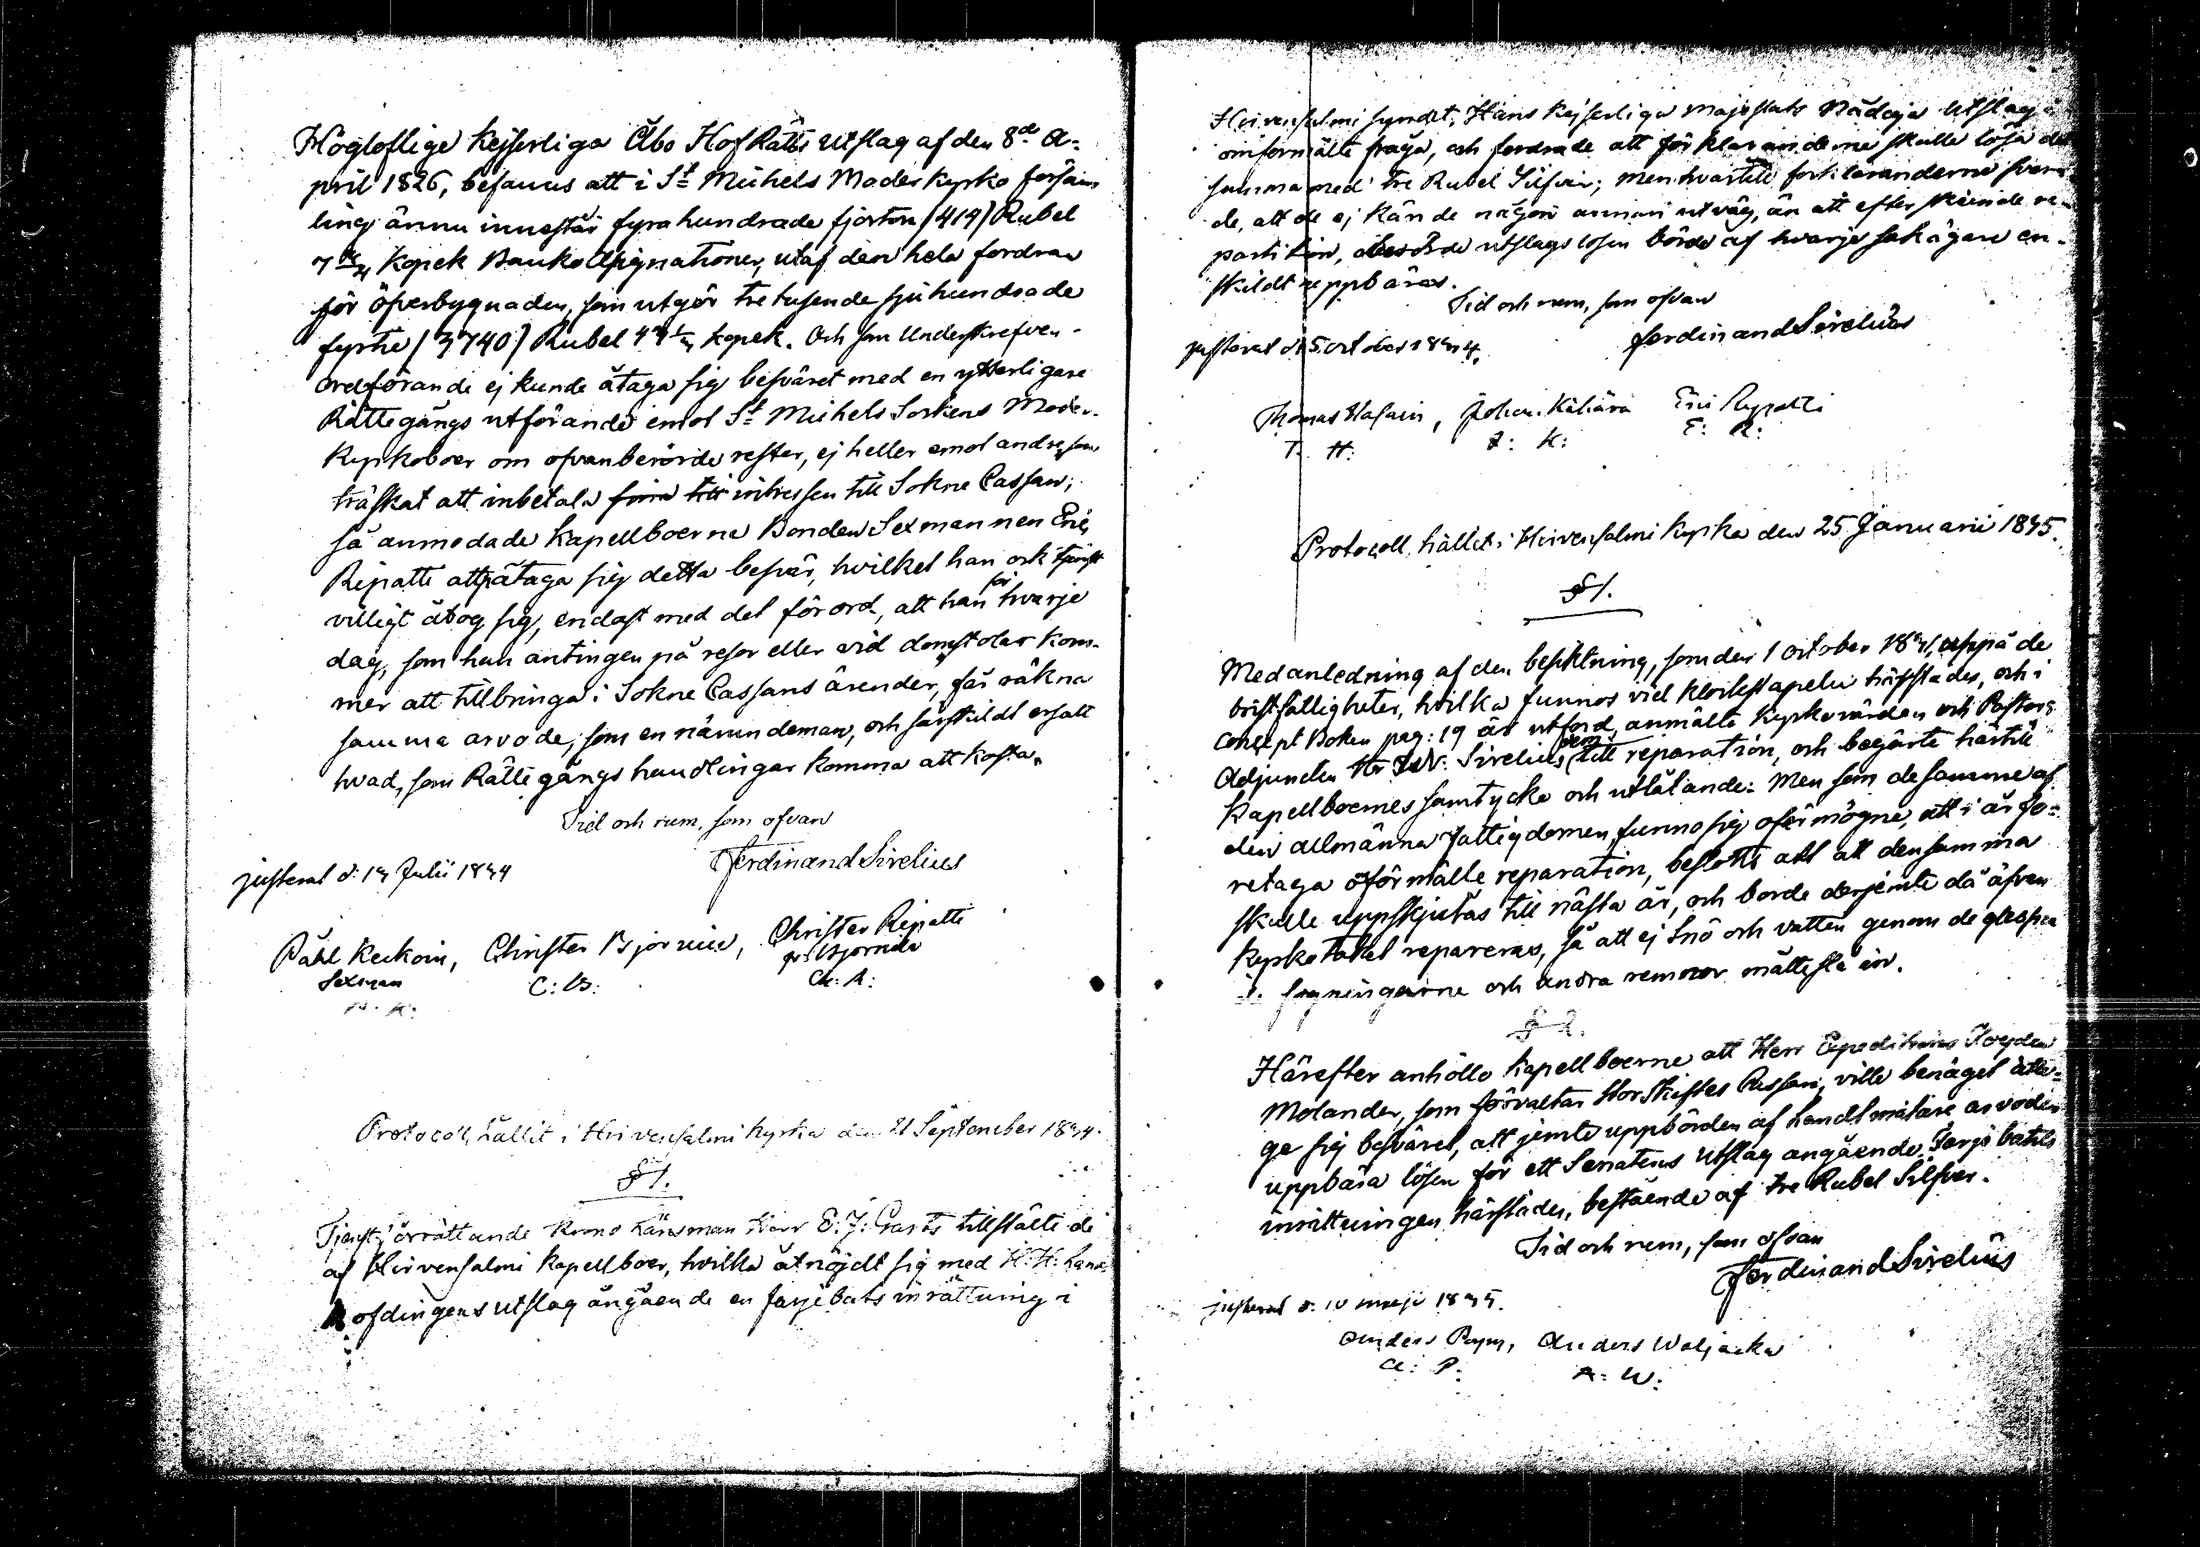 Högloflige Kejserliga Åbo Hof Rätts Utslag af den 8de A=
pril 1826, befanns att i St Michels Moderkyrko försam
ling ännu innestår fyrahundrade fjorton (414) Rubel
Kopek Banko Assignationer, utaf den hela fordran
för öfverbygnaden, som utgör tretusende sjuhundrade
fyrtio (3740) Rubel kopek. Och som Underskrefven
Ordförande ej kunde åtaga sig besväret med en ytterligare
Rättegångs utförande emot St Michels Sockens Moder-
kyrkoboer om ofvanberörde rester, ej heller emot andre, som
träskat att inbetala intressen till Sokne Cassan;
så anmodade Kapellboerne Bonden Sexmannen Eric
Ripatti att åtaga sig detta besvär, hvilket han ock
villigt åtog sig, endast med det förord, att han för hvarje
dag, som han antingen på resor eller vid domstolar kom-
mer att tillbringa i Sokne Cassans ärender, får räkna
samma arvode, som en nämndeman, och särskildt ersatt
hvad, som Rättegångs handlingar komma att kosta.
Tid och rum, som ofvan
Ferdinand Sirelius
justerat d. 14 Julii 1844
Påhl Keckoin, Christer Bjorninen, Christer Ripatti
Sexman C: B: Ch: R:
P: K:
Protocoll, hållit i Hirvensalmi Kyrka den 21 September 1844.
§ 1.
Tjenstförrättande Krono Länsman Herr E. J. tillställte de
af Hirvensalmi Kapellboer, hvilka åtnöjdt sig med H. H. Lands
höfdingens utslag angående en färjebåts inrättning i
Hirvensalmi sundet, Hans Kejserliga Majestäts Nådiga Utslag i
omförmälte fråga, och fordrade att förklaranderne skulle lösa det
samma med tre Rubel Silfver; men hvartill förklaranderne svara
de, att de ej kände någon annan utväg, än att efter skeende re-
partition, berörde utslags lösen borde af hvarje sakägare en-
skildt uppbäras.
Tid och rum, som ofvan
Ferdinand Sirelius
justerat d. 5 October 1844.
Thomas Hasain, Johan Kähärä Eric Rypatti
T. H: J: K: E: R:
Protocoll, hållit i Hirvensalmi Kyrka den 25 Januarii 1845.
§ 1.
Med anledning af den besiktning, som den 1 october 1841, uppå de
bristfälligheter, hvilka funnos vid Klockstapeln härstädes, och i
Concept Boken pag: 19 är utförd, anmälte Kyrkovärden och Pastors
Adjuncten Hr Sirelius dem till reparation, och begärte härtill
Kapellboernes samtycke och utlåtande: Men som desamme af
den allmänna fattigdomen, funno sig oförmögne, att i år fö=
retaga oförmälte reparation, beslöts att att densamma
skulle uppskjutas till nästa år, och borde derjemte då äfven
Kyrkotaket repareras, så att ej Snö och vatten genom de glespna
fogningarne och andra remnor måtte slå in.
§ 2.
Härefter anhöllo Kapellboerne att Herr Expeditions Fogden
Molander, som förvaltar Storskiftes Cassan, ville benäget åta=
ge sig besväret, att jemte uppbörden af Landtmätare arvoden
uppbära lösen för ett Senatens Utslag angående Färjebåts
inrättningen härstädes, bestående af tre Rubel Silfver.
Tid och rum, som ofvan
Ferdinand Sirelius
justerat d. 10 maji 1845.
Anders Papu, Anders Waljacka
A: P: A: W: